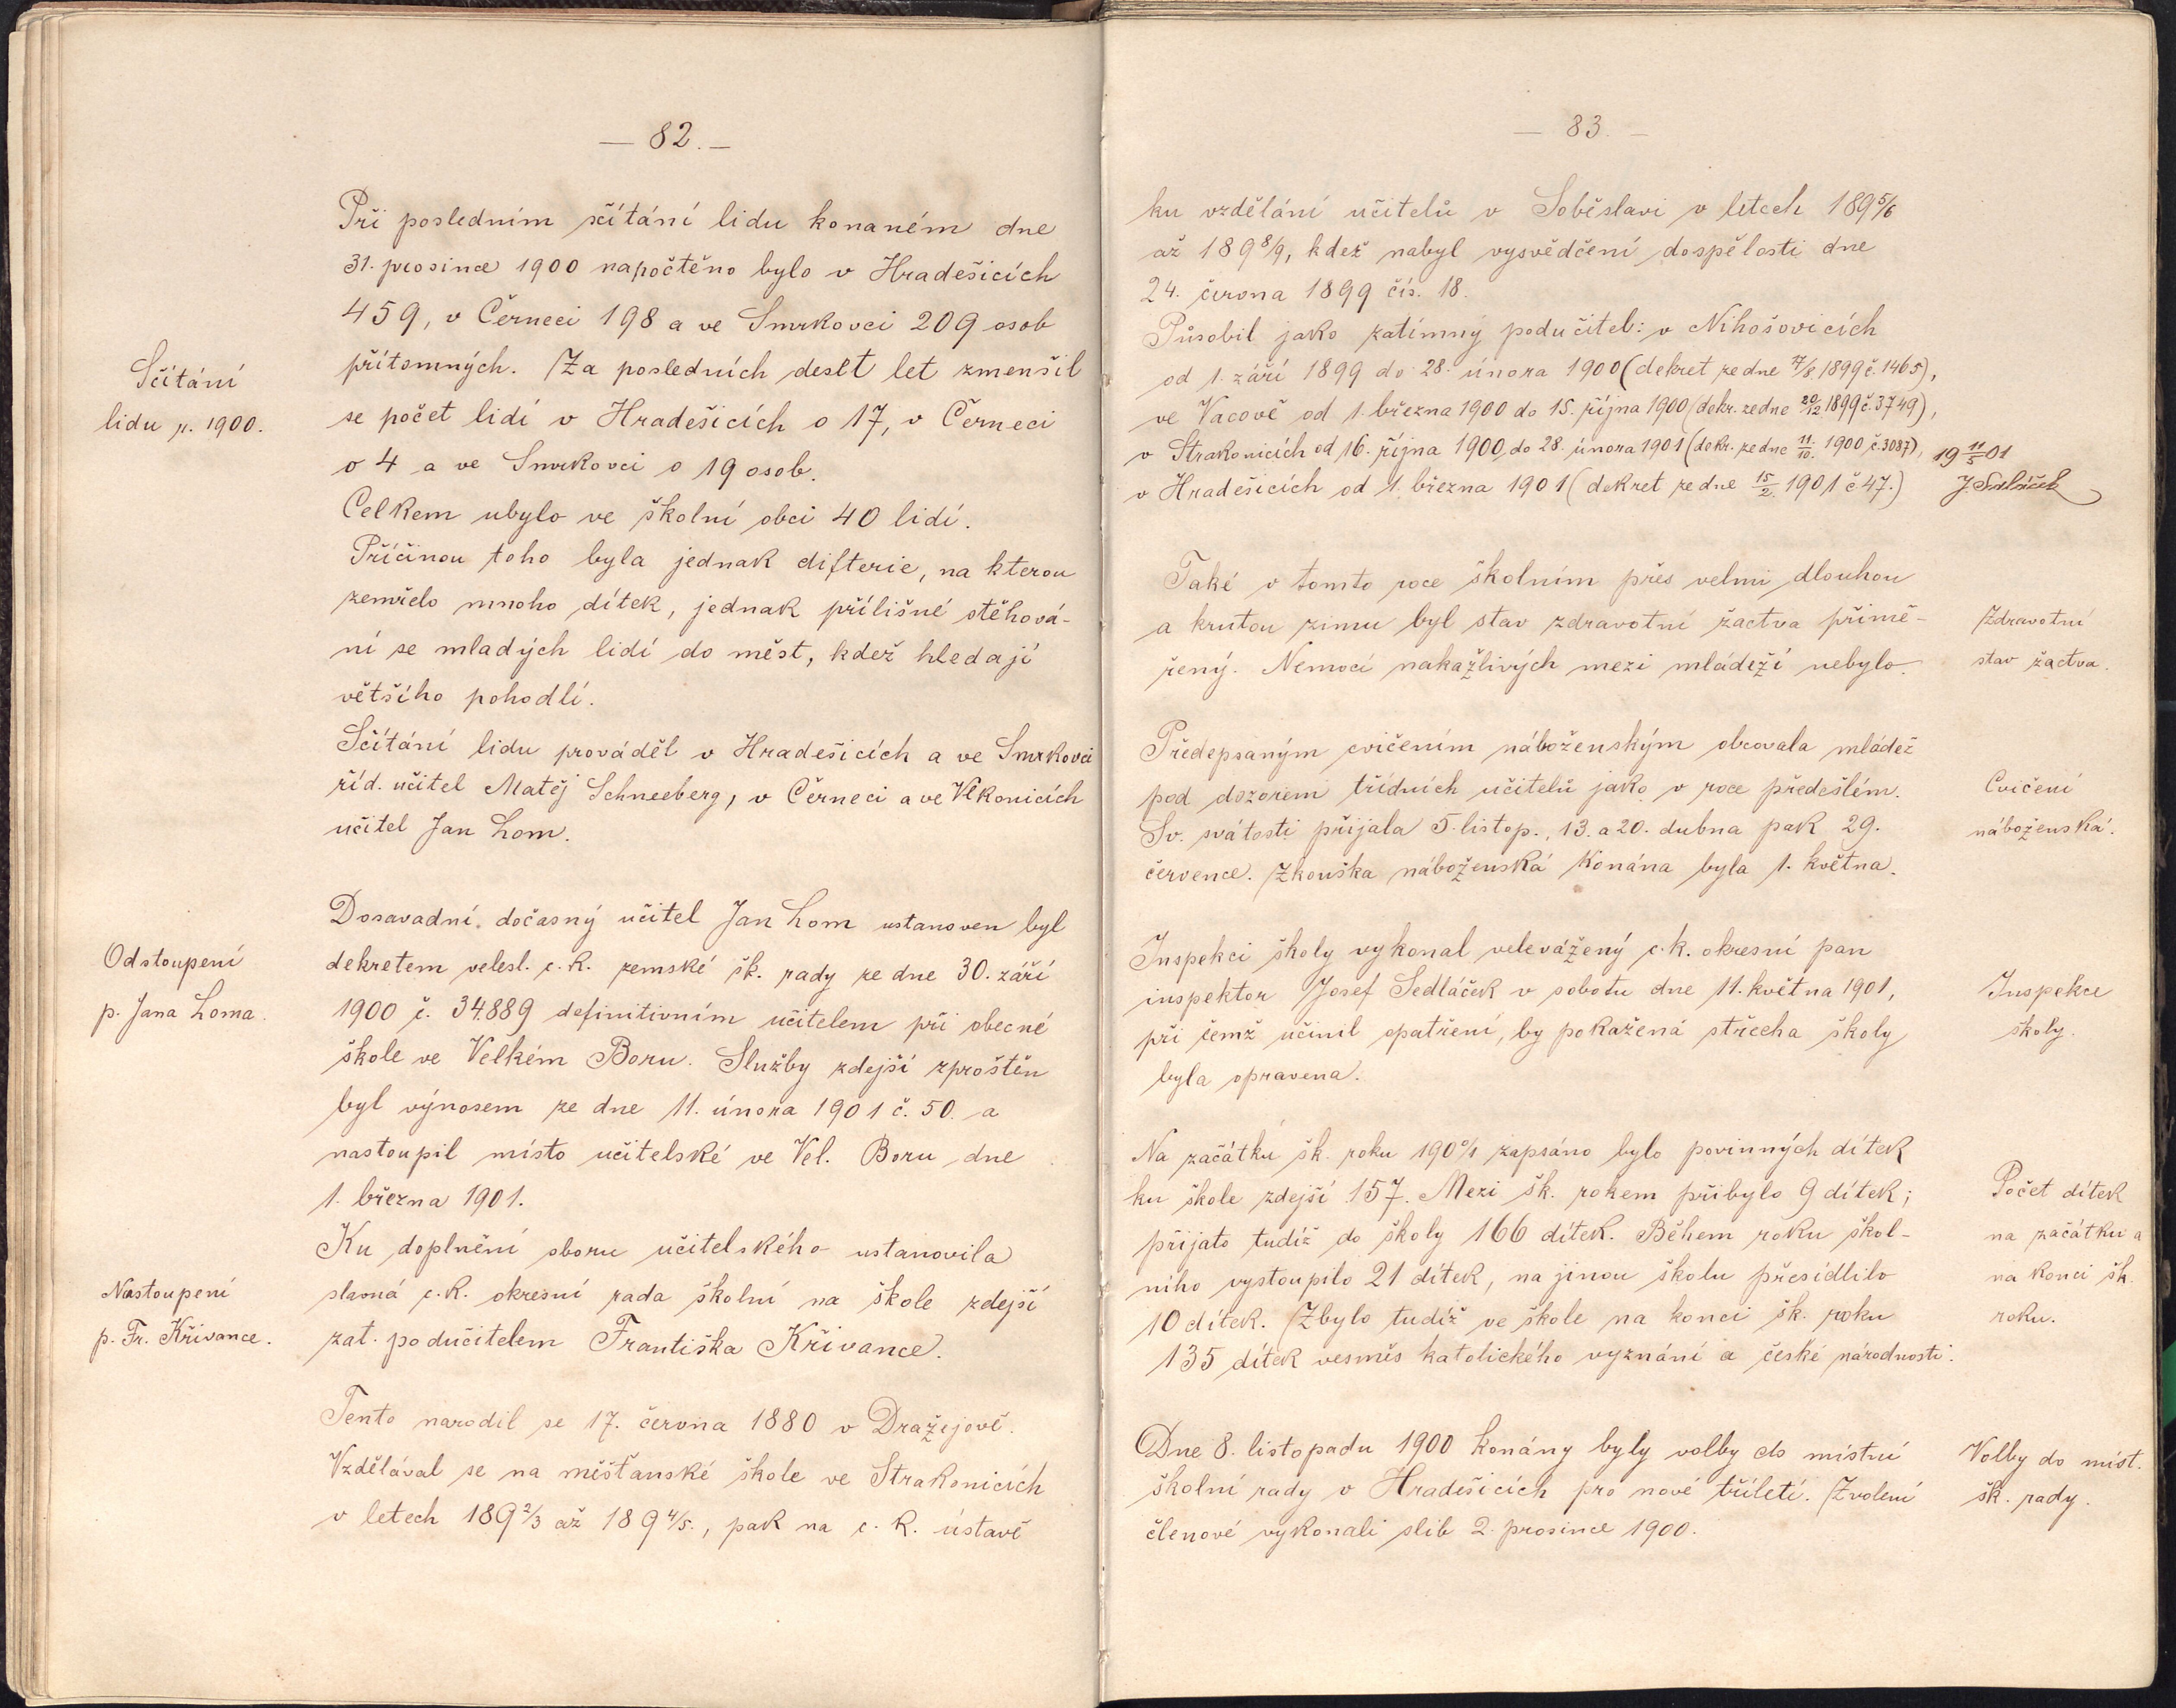 — 82. —
Při posledním sčítání lidu konaném dne
31. prosince 1900 napočtěno bylo v Hradešicích
459, v Černeci 198 a ve Smrkovci 209 osob
přítomných. Za posledních deset let zmenšil
Sčítání
lidu r. 1900.
se počet lidí v Hradešicích o 17, v Černeci
o 4 a ve Smrkovci o 19 osob.
Celkem ubylo ve školní obci 40 lidí.
Příčinou toho byla jednak difterie, na kterou
zemřelo mnoho dítek, jednak přílišné stěhová-
ní se mladých lidí do měst, kdež hledají
většího pohodlí.
Sčítání lidu prováděl v Hradešicích a ve Smrkovci
říd. učitel Matěj Schneeberg, v Černeci a ve Vlkonicích
učitel Jan Lom.
Dosavadní dočasný učitel Jan Lom ustanoven byl
Odstoupení
p. Jana Loma.
dekretem velesl. c. k. zemské šk. rady ze dne 30. září
1900 č. 34.889 definitivním učitelem při obecné
škole ve Velkém Boru. Služby zdejší zproštěn
byl výnosem ze dne 11. února 1901 č. 50. a
nastoupil místo učitelské ve Vel. Boru dne
1. března 1901.
Ku doplnění sboru učitelského ustanovila
Nastoupení
p. Fr. Křivance.
slavná c. k. okresní rada školní na škole zdejší
zat. podučitelem Františka Křivance.
Tento narodil se 17. června 1880 v Dražejově.
Vzdělával se na měšťanské škole ve Strakonicích
v letech 189 2/3 až 189 4/5., pak na c. k. ústavě
— 83. —
ku vzdělání učitelů v Soběslavi v letech 189 5/6
až 189 8/9, kdež nabyl vysvědčení dospělosti dne
24. června 1899 čís. 18.
Působil jako zatímný podučitel: v Nihošovicích
od 1. září 1899 do 28. února 1900 (dekret ze dne 17/8. 1899 č. 1465),
ve Vacově od 1. března 1900 do 15. října 1900 (dekr. ze dne 20/12. 1899 č. 3749),
v Strakonicích od 16. října 1900 do 28. února 1901 (dekr. ze dne 11./10. 1900 č. 3087),
v Hradešicích od 1. března 1901 (dekret ze dne 15/2. 1901 č 47.)
19 11/5 01
J. Sedláček
Také v tomto roce školním přes velmi dlouhou
a krutou zimu byl stav zdravotní žactva přimě-
řený. Nemocí nakažlivých mezi mládeží nebylo.
Zdravotní
stav žactva.
Předepsaným cvičením náboženským obcovala mládež
pod dozorem třídních učitelů jako v roce předešlém.
Sv. svátosti přijala 5. listop., 13. a 20. dubna pak 29.
července. Zkouška náboženská konána byla 1. května.
Cvičení
náboženská.
Inspekci školy vykonal velevážený c. k. okresní pan
inspektor Josef Sedláček v sobotu dne 11. května 1901,
při čemž učinil opatření, by pokažená střecha školy
byla opravena.
Inspekce
školy.
Na začátku šk. roku 190 0/1 zapsáno bylo povinných dítek
ku škole zdejší 157. Mezi šk. rokem přibylo 9 dítek;
přijato tudíž do školy 166 dítek. Během roku škol-
ního vystoupilo 21 dítek, na jinou školu přesídlilo
10 dítek. Zbylo tudíž ve škole na konci šk. roku
135 dítek vesměs katolického vyznání a české národnosti.
Počet dítek
na začátku a
na konci šk.
roku.
Dne 8. listopadu 1900 konány byly volby do místní
školní rady v Hradešicích pro nové tříletí. Zvolení
členové vykonali slib 2. prosince 1900.
Volby do míst.
šk. rady.